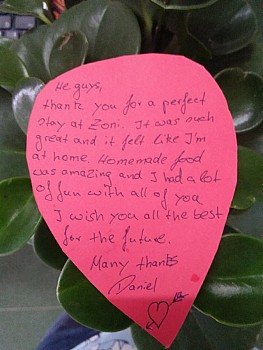 He gays,
thank you for a perfect
stay at Zoni. It was such
great and it felt like I'm
at home. Homemade food
was amazing and I had a lot
of fun with all of you
I wish you all the best
for the future.
Many thanks
Daniel